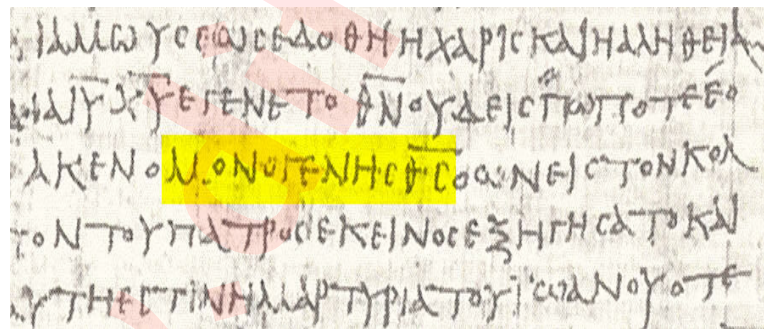 ΙΑΜΩΥϹΕΩϹΕΔΟΘΗΗΧΑΡΙϹΚΑΙΗΑΛΗΘΕΙΑ
ΙΑΙ̅Υ̅Χ̅Υ̅ΕΓΕΝΕΤΟΘ̅Ν̅ΟΥΔΕΙϹΠΩΠΟΤΕΕΟ
ΑΚΕΝΟΜΟΝΟΓΕΝΗϹΘ̅Ϲ̅ΟΩΝΕΙϹΤΟΝΚΟΛ
ΟΝΤΟΥΠΑΤΡΟϹΕΚΕΙΝΟϹΕΞΗΓΗϹΑΤΟΚΑΙ
ΥΤΗΕϹΤΙΝΗΜΑΡΤΥΡΙΑΤΟΥΪΩΑΝΟΥΟΤΕ